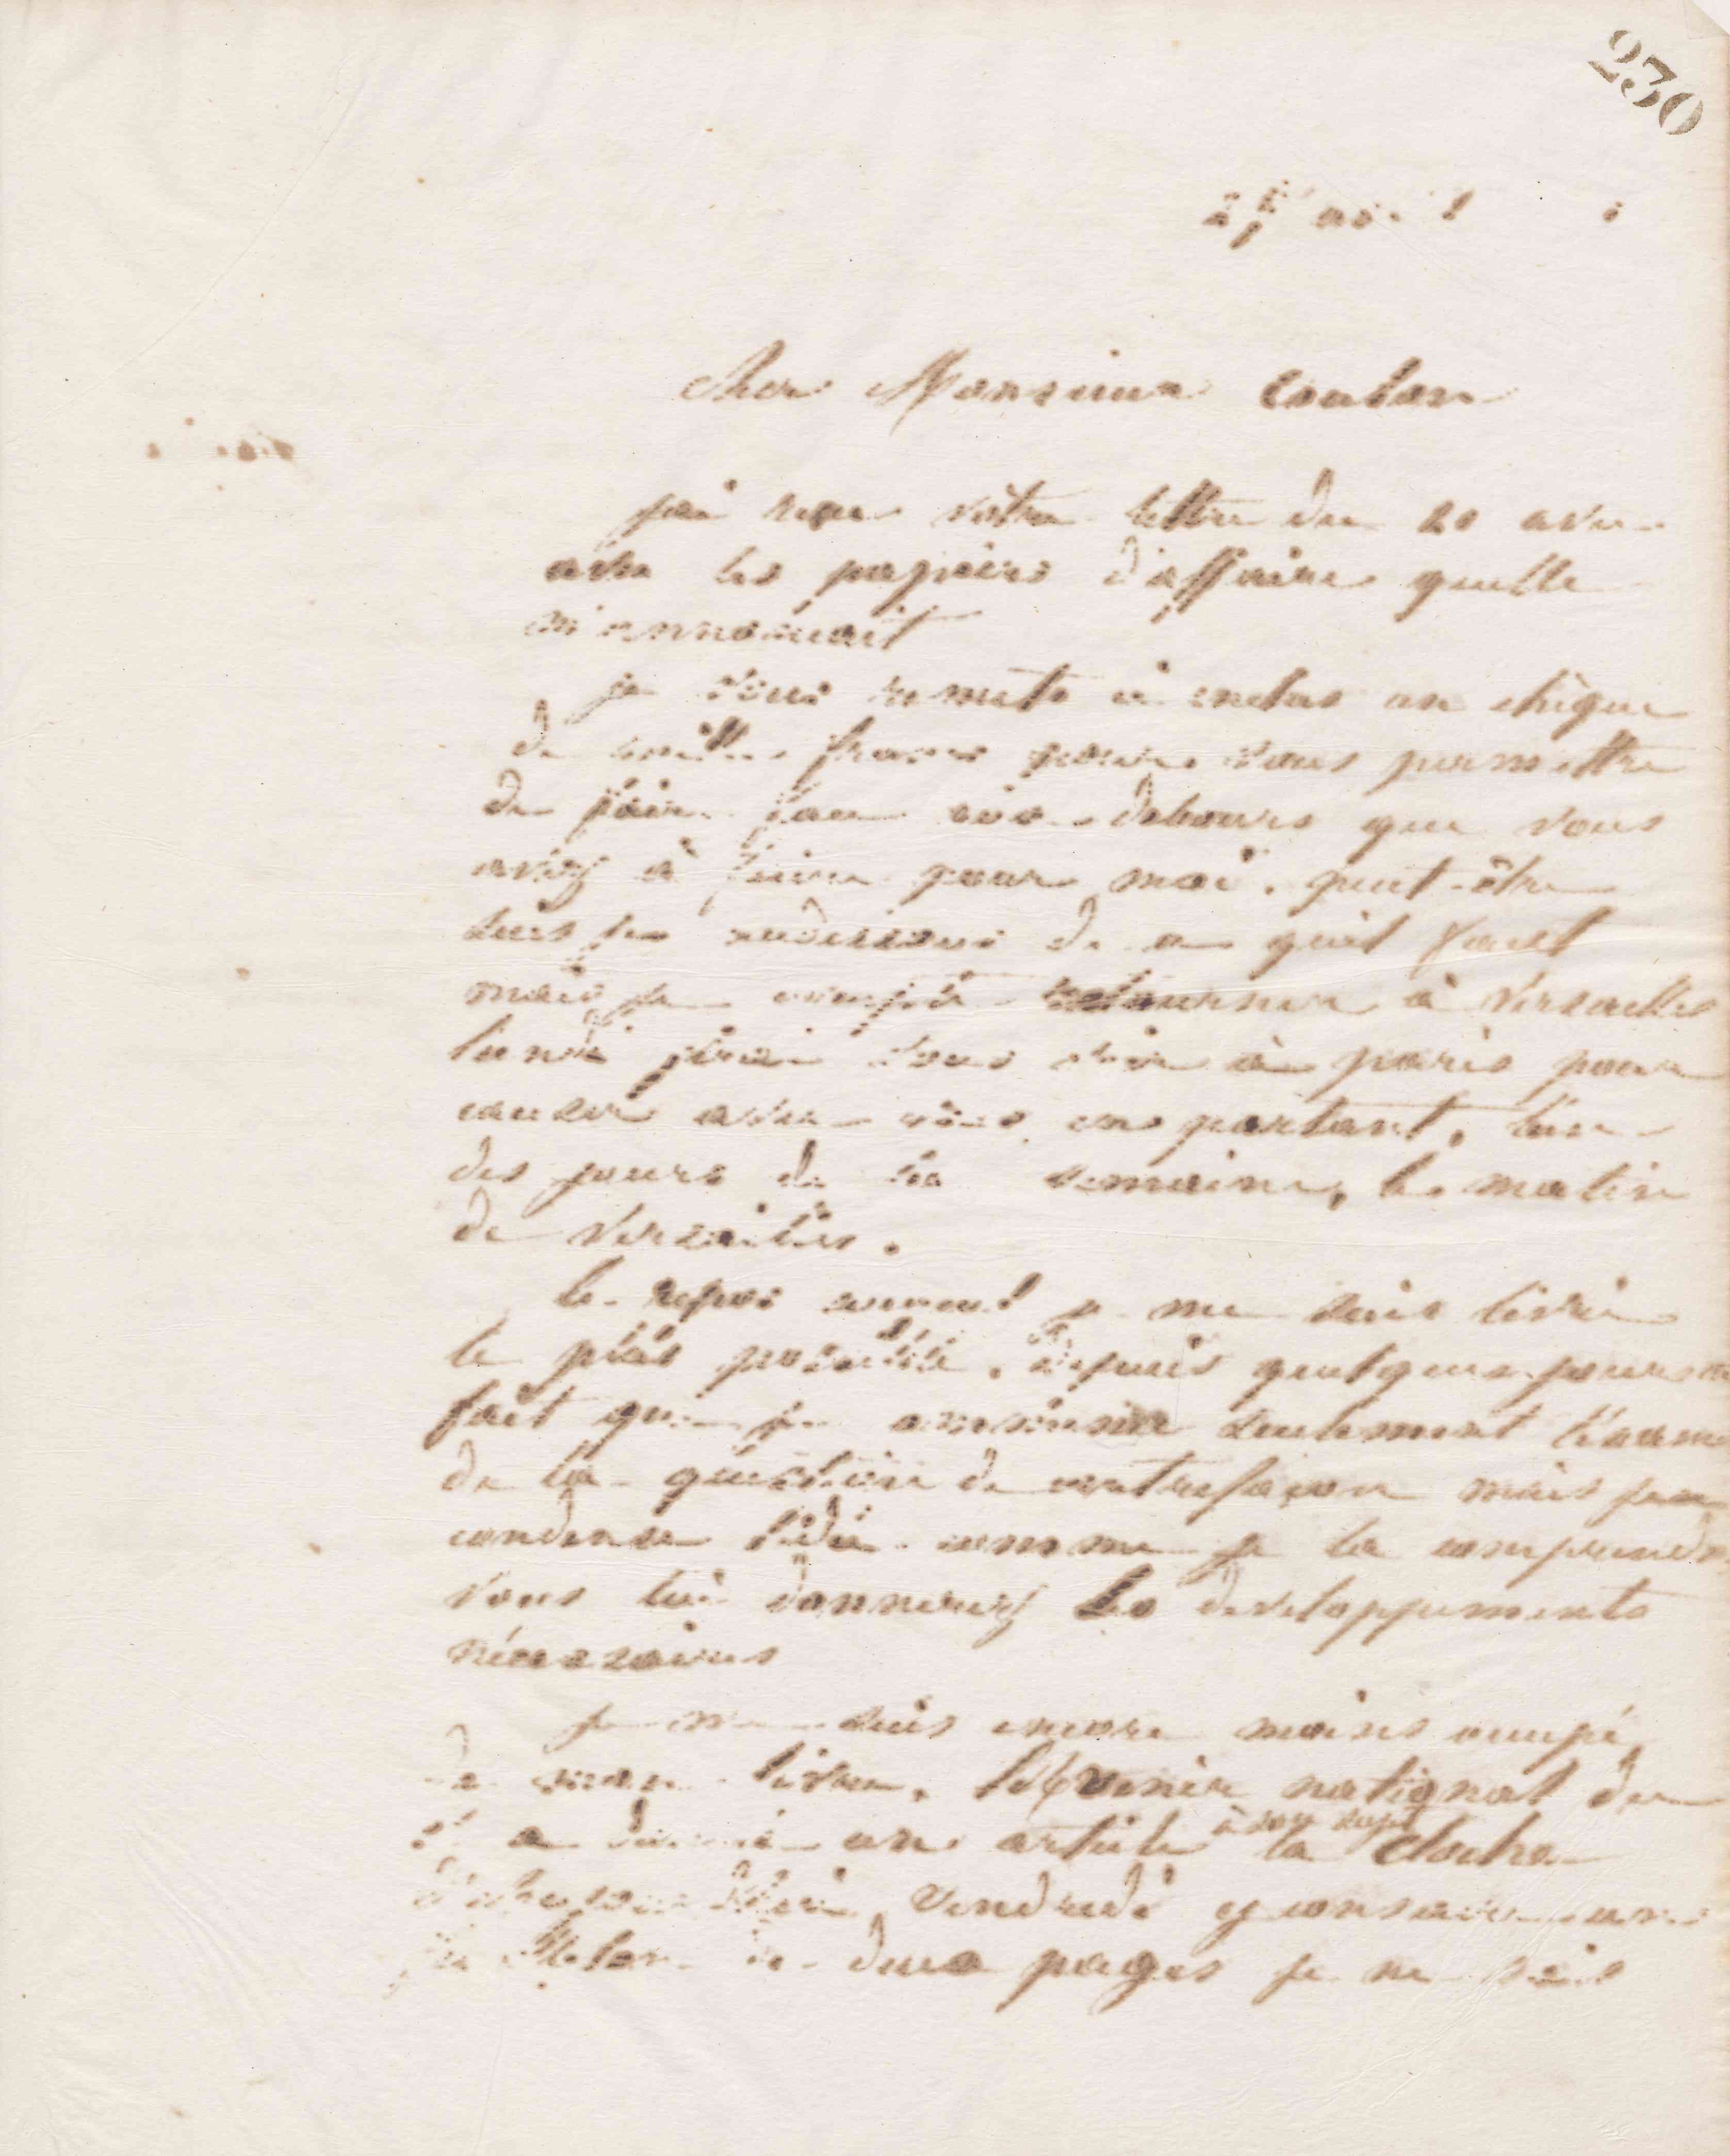 230
27 avril
Cher Monsieur Coulon
j'ai reçu votre lettre du 20 avec
avec les papiers d'affaires quelle
m'annoncait
je vous remets ci enclus un chèque
de mille francs pour vous permettre
de faire face aux debours que vous
avez à faire pour moi. peut-être
suis je audessous de ce quil faut
mais je compte retourner à Versailles
lundi j'irai vous voir à paris pour
causer avec vous en partant, l'un
des jours de la semaine, le matin
de Versailles.
le repos auquel je me suis livré
le plus possible, depuis quelques jours a
fait que je commence seulement l'exame
de la question de contrefaçon mais j'en
condense l'idée comme je la comprends
vous lui donnerez les developpements
nécessaires
je me suis encore moins occupé
de mon livre. l'Avenir national du
a donné un article à son sujet la Cloche
vendredi y consacre un
feuilleton de deux pages je ne sais